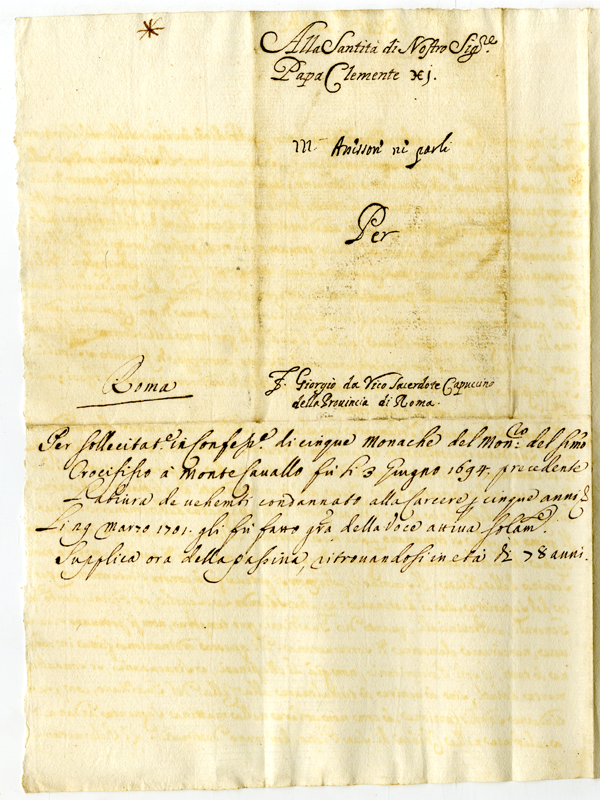 Alla Santità di Nostro Sig.re
Papa Clemente XI.
M.r Anisson ne parli
Per
Roma
F. Giorgio da Vico Sacerdote Capuccino
della Provincia di Roma.
Per sollecitat.e in Confess.e di cinque Monache del Mon.rio del S.smo
Crocifisso à Monte Cavallo fù li 3 Giugno 1694. precedente
l'abiura de vehementi condannato alla carcere p cinque anni, e
li 29 Marzo 1701. gli fù fatto gr̃a della voce attiva solam.e
Supplica ora della passiva, ritrovandosi in età di 78 anni.